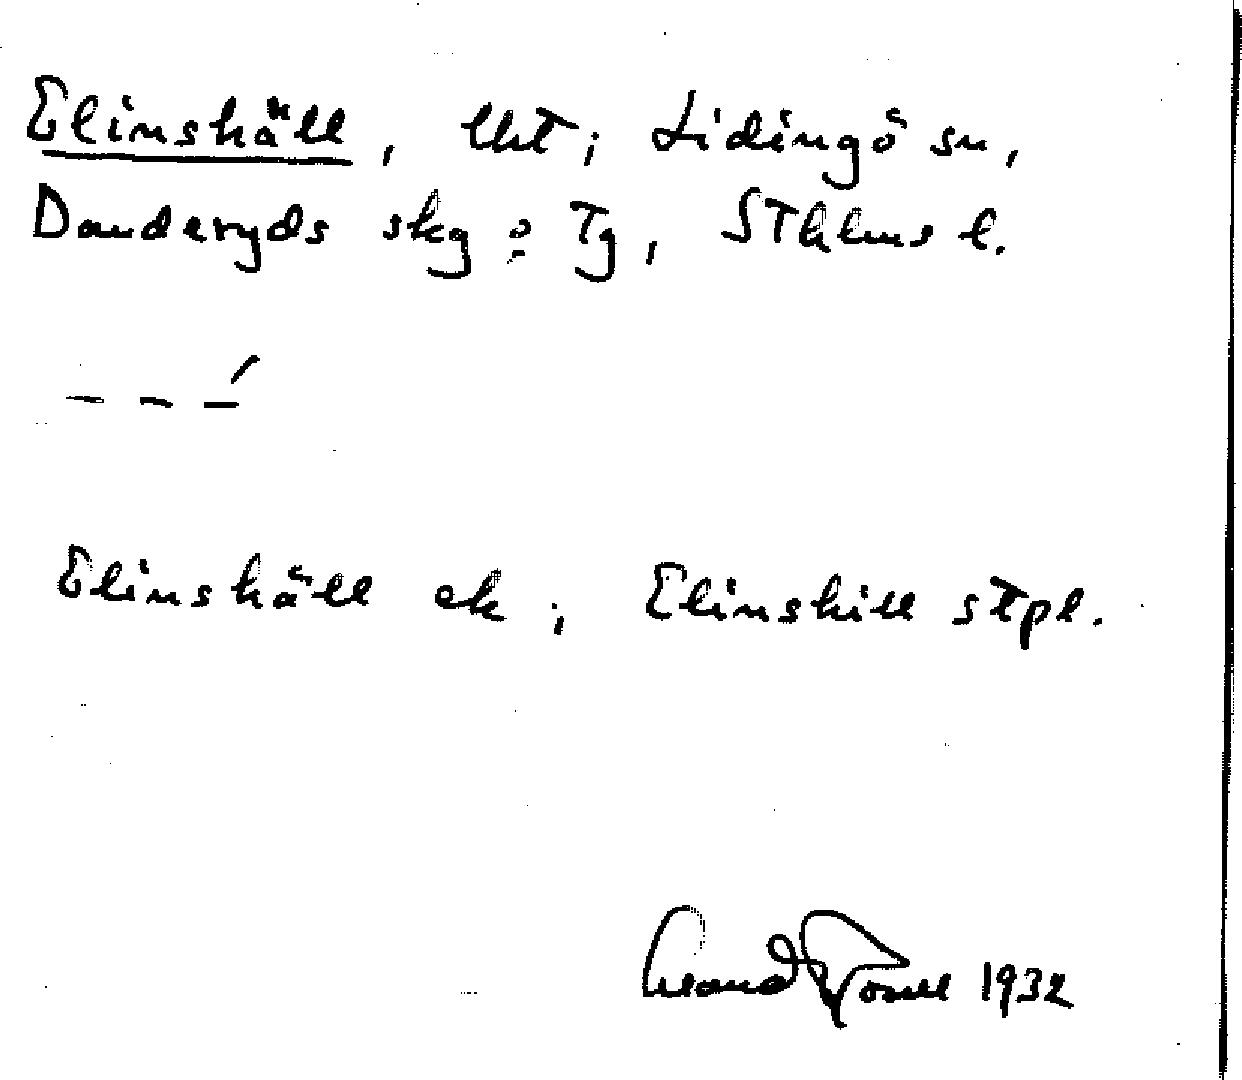 Elinshäll, lht; Lidingö sn,
Danderyds skg o Tg, Sthlms l.
– – –́
Elinshäll ek; Elinshill stpl.
1932